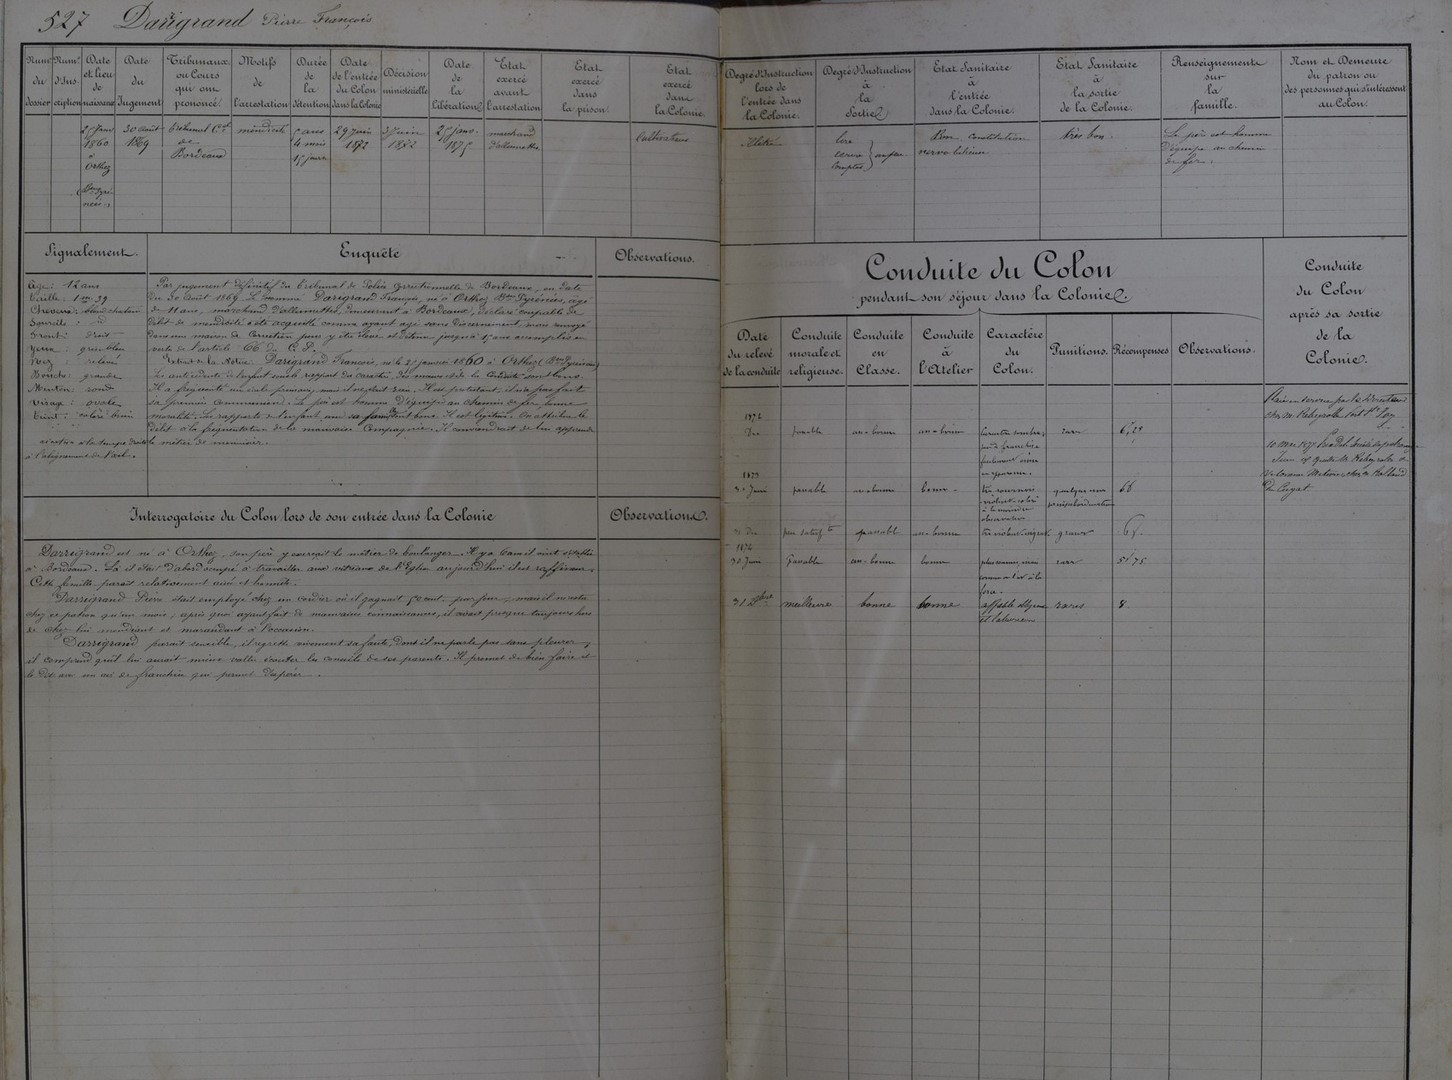 527 Darigrand Pierre François
Num. du dossier
Num. d'Inscription
Date et lieu de naissance
Date du Jugement
Tribunaux ou Cours qui ont prononcé
Motifs de l'arrestation
Durée de la Détention
Date de l'entrée du Colon dans la Colonie
Décision ministérielle
Date de la Libération
Etat exercé avant l'arrestation
Etat exercé dans la prison
Etat exercé dans la Colonie
25 janv. 1860 à Orthez
30 août 1869
Tribunal Cel de Bordeaux
mendicité
5 ans 4 mois
29 juin 1872
1872
25 janv. 1875
marchand d'allumettes
Cultivateur
Signalement.
Enquête
Observations.
Age : 12 ans
Taille : 1m 39
Cheveux :
Sourcils : id
Front : droit
Yeux : gris bleu
Nez : relevé
Bouche : grande
Menton : rond
Visage : ovale
Teint : coloré brun
Par jugement définitif du Tribunal de Police Correctionnelle de Bordeaux, en date
du 30 août 1869. Le nommé Darigrand François, né à Orthez Bses Pyrénées, âgé
de 11 ans, marchand d'allumettes, demeurant à Bordeaux, déclaré coupable de
délit de mendicité a été acquitté comme ayant agi sans discernement, mais envoyé
dans une maison de Correction pour y être élevé et détenu jusqu'à 15 ans accomplis en
vertu de l'article 66 du C. P.
Extrait de la Notice : Darigrand François, né le 25 janvier 1860 à Orthez (Bses Pyrénées)
Les antécédents de l'enfant sous le rapport du caractère, des mœurs et de la conduite sont bons.
Il a fréquenté une école primaire, mais il ne sait rien. Il est protestant, il n'a pas fait
sa première communion. Le père est homme d'équipe au chemin de fer, bonne
moralité. Les rapports de l'enfant avec sa famille sont bons. Il est légitime. On attribue le
délit à la fréquentation de la mauvaise Compagnie. Il conviendrait de lui apprendre
le métier de menuisier.
Interrogatoire du Colon lors de son entrée dans la Colonie
Observations.
Darrigrand est né à Orthez, son père y exerçait le métier de boulanger. Il y a 6 ans il vint s'établir
à Bordeaux. Là il était d'abord occupé à travailler aux vitraux de l'Eglise aujourd'hui il est
Cette famille paraît relativement aisée et honnête.
Darrigrand Pierre était employé chez un cordier où il gagnait 50 cent. par jour, mais il ne resta
chez ce patron qu'un mois, après quoi ayant fait de mauvaises connaissances, il avait presque toujours hors
de chez lui mendiant et maraudant à l'occasion.
Darrigrand paraît sensible, il regrette vivement sa faute, dont il ne parle pas sans pleurer,
il comprend qu'il lui aurait mieux valu écouter les conseils de ses parents. Il promet de bien faire et
le dit avec un air de franchise qui permet d'espérer.
Degré d'Instruction lors de l'entrée dans la Colonie.
Degré d'Instruction à la Sortie
Etat Sanitaire à l'entrée dans la Colonie.
Etat Sanitaire à la sortie de la Colonie.
Renseignements sur la famille.
Nom et Demeure du patron ou des personnes qui s'intéressent au Colon.
Illettré
lire
écrire
compter
Bonne constitution
Très bon.
Le père est homme
d'équipe au chemin
de fer.
Conduite du Colon
pendant son séjour dans la Colonie.
Conduite
du Colon
après sa sortie
de la
Colonie.
Date du relevé de la conduite
Conduite morale et religieuse.
Conduite en Classe.
Conduite à l'Atelier
Caractère du Colon.
Punitions.
Récompenses
Observations.
1872
Xbre passable ass. bonne ass. bonne rares
1873
30 Juin passable ass. bonne bonne 66
31 Xbre passable ass. bonne graves
1874
30 Juin passable ass. bonne bonne rares 5f 75
31 Xbre meilleure bonne bonne rares 8
10 mai 1875